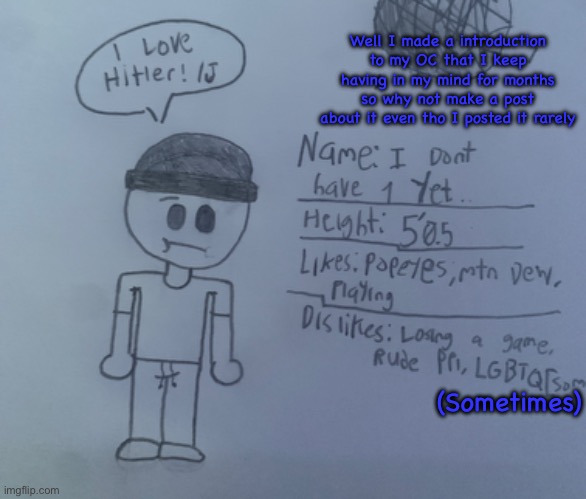 I Love
Hitler! /J
Well I made a introduction
to my OC that I keep
having in my mind for months
so why not make a post
about it even tho I posted it rarely
Name: I Dont
have 1 Yet..
Height: 5'0.5
Likes: Popeyes, mtn Dew,
Playing
Dislikes: Losing a game,
Rude PPl, LGBTQ[som
(Sometimes)
imgflip.com